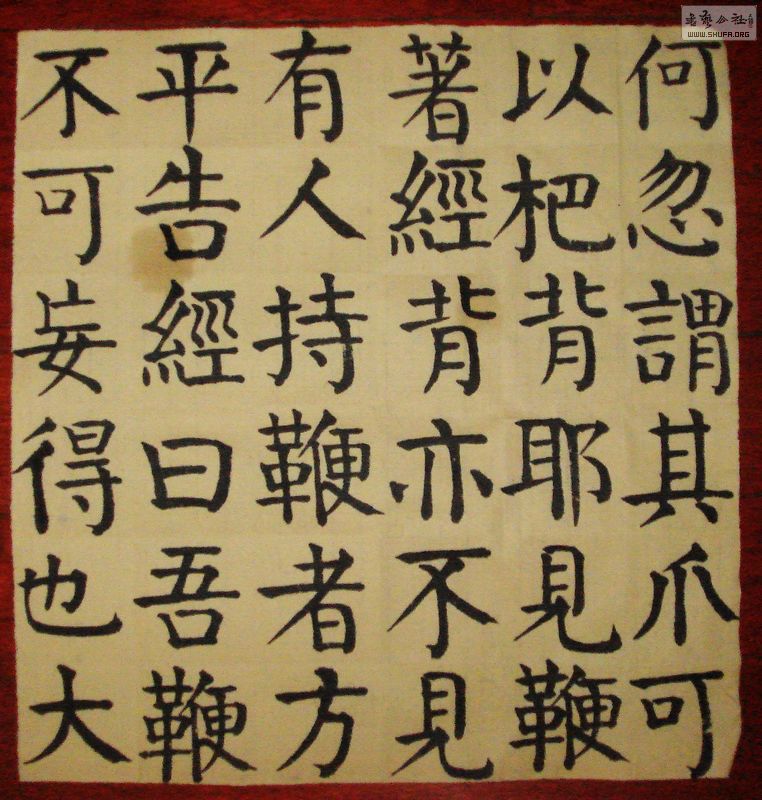 何忽謂其爪可
以杷背耶見鞭
著經背亦不見
有人持鞭者方
平告經曰吾鞭
不可妄得也大
書藝公社
WWW.SHUFA.ORG